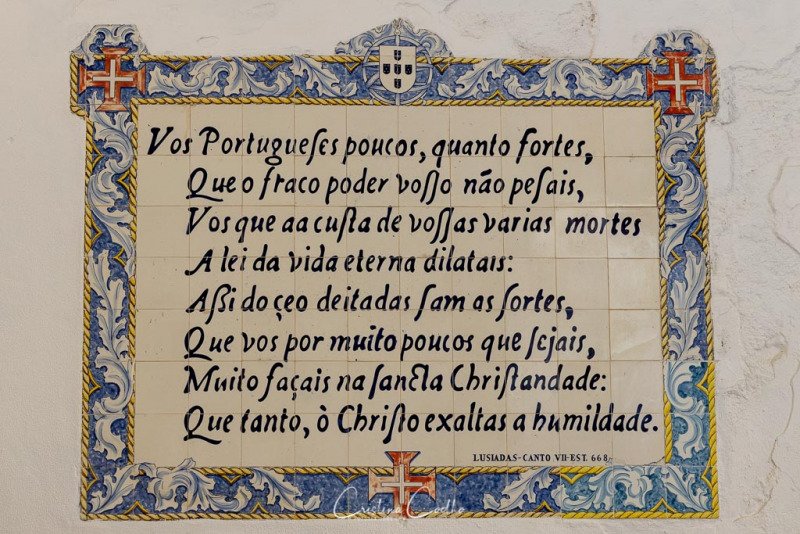 Vos Portugueſes poucos, quanto fortes,
Que o fraco poder voſſo não peſais,
Vos que aa cuſta de voſſas varias mortes
A lei da vida eterna dilatais:
Aßi do çeo deitadas ſam as ſortes,
Que vos por muito poucos que ſejais,
Muito façais na ſancta Chriſtandade:
Que tanto, ò Chriſto exaltas a humildade.
LUSIADAS-CANTO VII-EST. 668,-
Cristina Coelho